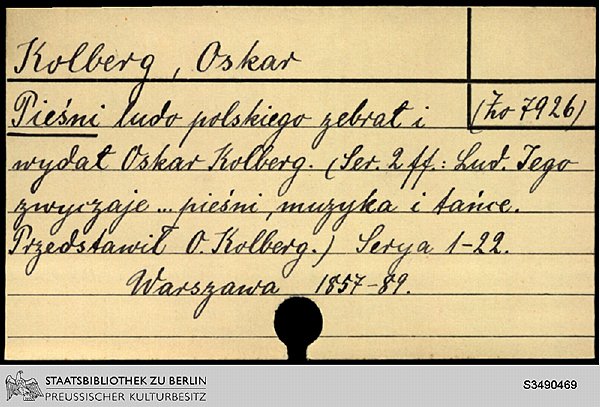 Kolberg, Oskar
Pieśni ludo polskiego zebrał i (Zo 7926)
wydał Oskar Kolberg. (Ser. 2 ff.: Lud. Jego
zwyczaje ... pieśni, muzyka i tańce.
Przedstawił O. Kolberg.) Serya 1-22.
Warszawa 1857-89.
STAATSBIBLIOTHEK ZU BERLIN
PREUSSISCHER KULTURBESITZ
S3490469